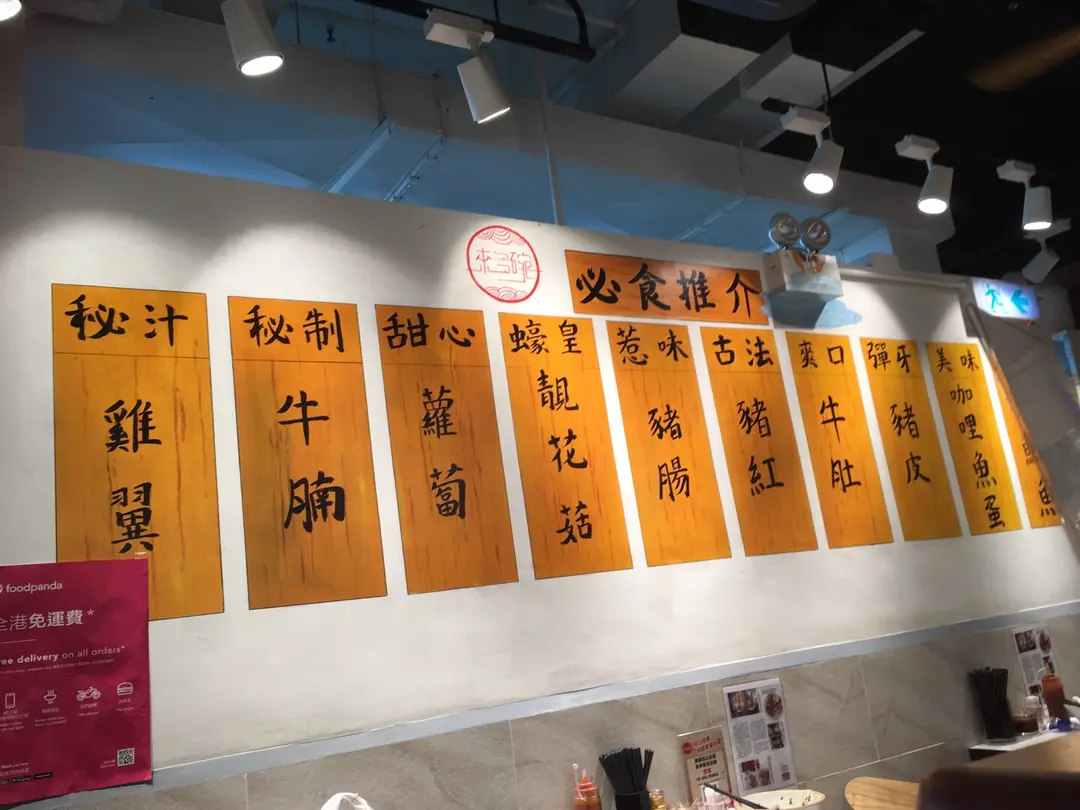 來多碗
必食推介
秘汁
雞翼
秘制
牛腩
甜心
蘿蔔
蠔皇
靚花菇
惹味
豬腸
古法
豬紅
爽口
牛肚
彈牙
豬皮
美味
咖哩魚蛋
魚
foodpanda
全港免運費*
free delivery on all orders*